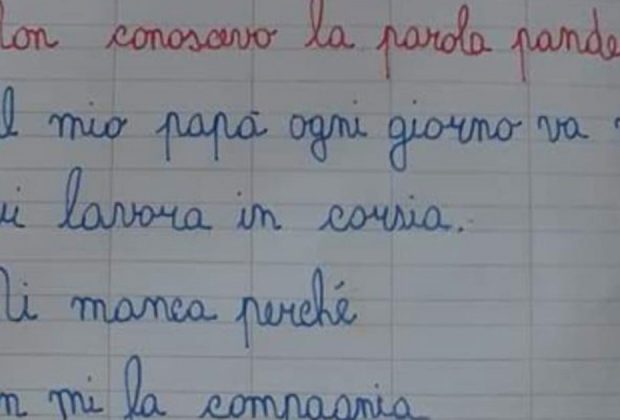 on conoscevo la parola pande
l mio papà ogni giorno va
ui lavora in corsia.
i manca perché
n mi fa compagnia